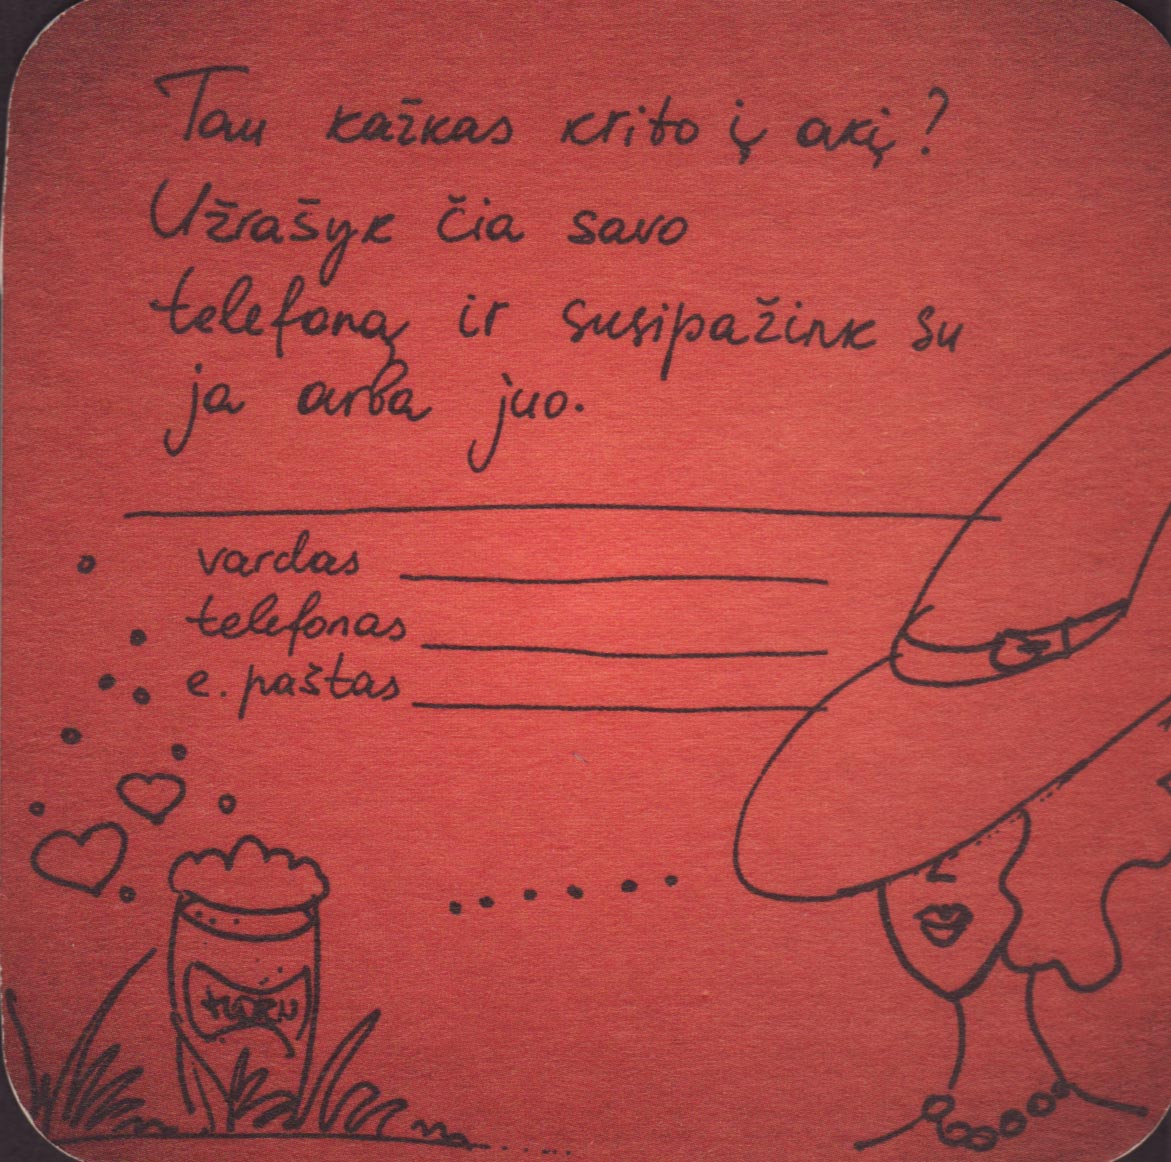 Tau kažkas krito į akį?
Užrašyk čia savo
telefoną ir susipažink su
ja arba juo.
vardas
telefonas
e. paštas